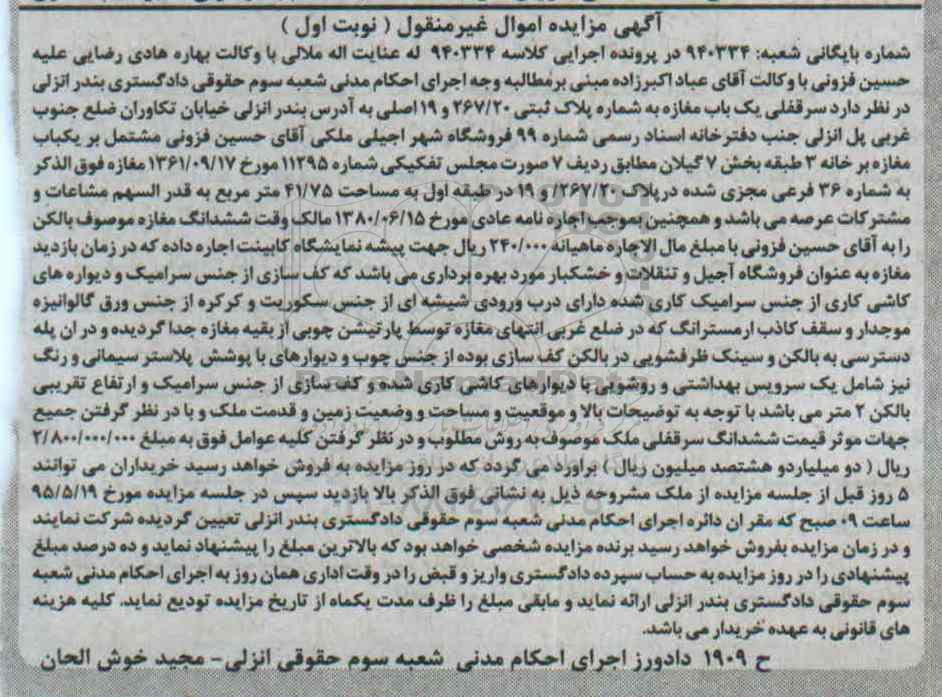 آگهی مزایده اموال غیرمنقول ( نوبت اول )
شماره بایگانی شعبه: ۹۴۰۳۳۴ در پرونده اجرایی کلاسه ۹۴۰۳۳۴ له عنایت اله ملالی با وکالت بهاره هادی رضایی علیه
حسین فزونی با وکالت آقای عباد اکبرزاده مبنی بر مطالبه وجه اجرای احکام مدنی شعبه سوم حقوقی دادگستری بندر انزلی
در نظر دارد سرقفلی یک باب مغازه به شماره پلاک ثبتی ۲۶۷/۲۰ و ۱۹ اصلی به آدرس بندر انزلی خیابان تکاوران ضلع جنوب
غربی پل انزلی جنب دفترخانه اسناد رسمی شماره ۹۹ فروشگاه شهر اجیلی ملکی آقای حسین فزونی مشتمل بر یکباب
مغازه بر خانه ۳ طبقه بخش ۷ گیلان مطابق ردیف ۷ صورت مجلس تفکیکی شماره ۱۱۲۹۵ مورخ ۱۳۶۱/۰۹/۱۷ مغازه فوق الذکر
به شماره ۳۶ فرعی مجزی شده در پلاک ۲۶۷/۲۰/ و ۱۹ در طبقه اول به مساحت ۴۱/۷۵ متر مربع به قدر السهم مشاعات و
مشترکات عرصه می باشد و همچنین بموجب اجاره نامه عادی مورخ ۱۳۸۰/۰۶/۱۵ مالک وقت ششدانگ مغازه موصوف بالکن
را به آقای حسین فزونی با مبلغ مال الاجاره ماهیانه ۲۴۰/۰۰۰ ریال جهت پیشه نمایشگاه کابینت اجاره داده که در زمان بازدید
مغازه به عنوان فروشگاه آجیل و تنقلات و خشکبار مورد بهره برداری می باشد که کف سازی از جنس سرامیک و دیواره های
کاشی کاری از جنس سرامیک کاری شده دارای درب ورودی شیشه ای از جنس سکوریت و کرکره از جنس ورق گالوانیزه
موجدار و سقف کاذب ارمسترانگ که در ضلع غربی انتهای مغازه توسط پارتیشن چوبی از بقیه مغازه جدا گردیده و در ان پله
دسترسی به بالکن و سینک ظرفشویی در بالکن کف سازی بوده از جنس چوب و دیوارهای با پوشش پلاستر سیمانی و رنگ
نیز شامل یک سرویس بهداشتی و روشویی با دیوارهای کاشی کاری شده و کف سازی از جنس سرامیک و ارتفاع تقریبی
بالکن ۲ متر می باشد با توجه به توضیحات بالا و موقعیت و مساحت و وضعیت زمین و قدمت ملک و با در نظر گرفتن جمیع
جهات موثر قیمت ششدانگ سرقفلی ملک موصوف به روش مطلوب و در نظر گرفتن کلیه عوامل فوق به مبلغ ۲/۸۰۰/۰۰۰/۰۰۰
ریال ( دو میلیاردو هشتصد میلیون ریال ) براورد می گردد که در روز مزایده به فروش خواهد رسید خریداران می توانند
۵ روز قبل از جلسه مزایده از ملک مشروحه ذیل به نشانی فوق الذکر بالا بازدید سپس در جلسه مزایده مورخ ۹۵/۵/۱۹
ساعت ۰۹ صبح که مقر ان دائره اجرای احکام مدنی شعبه سوم حقوقی دادگستری بندر انزلی تعیین گردیده شرکت نمایند
و در زمان مزایده بفروش خواهد رسید برنده مزایده شخصی خواهد بود که بالاترین مبلغ را پیشنهاد نماید و ده درصد مبلغ
پیشنهادی را در روز مزایده به حساب سپرده دادگستری واریز و قبض را در وقت اداری همان روز به اجرای احکام مدنی شعبه
سوم حقوقی دادگستری بندر انزلی ارائه نماید و مابقی مبلغ را ظرف مدت یکماه از تاریخ مزایده تودیع نماید. کلیه هزینه
های قانونی به عهده خریدار می باشد.
ح ۱۹۰۹ دادورز اجرای احکام مدنی شعبه سوم حقوقی انزلی- مجید خوش الحان